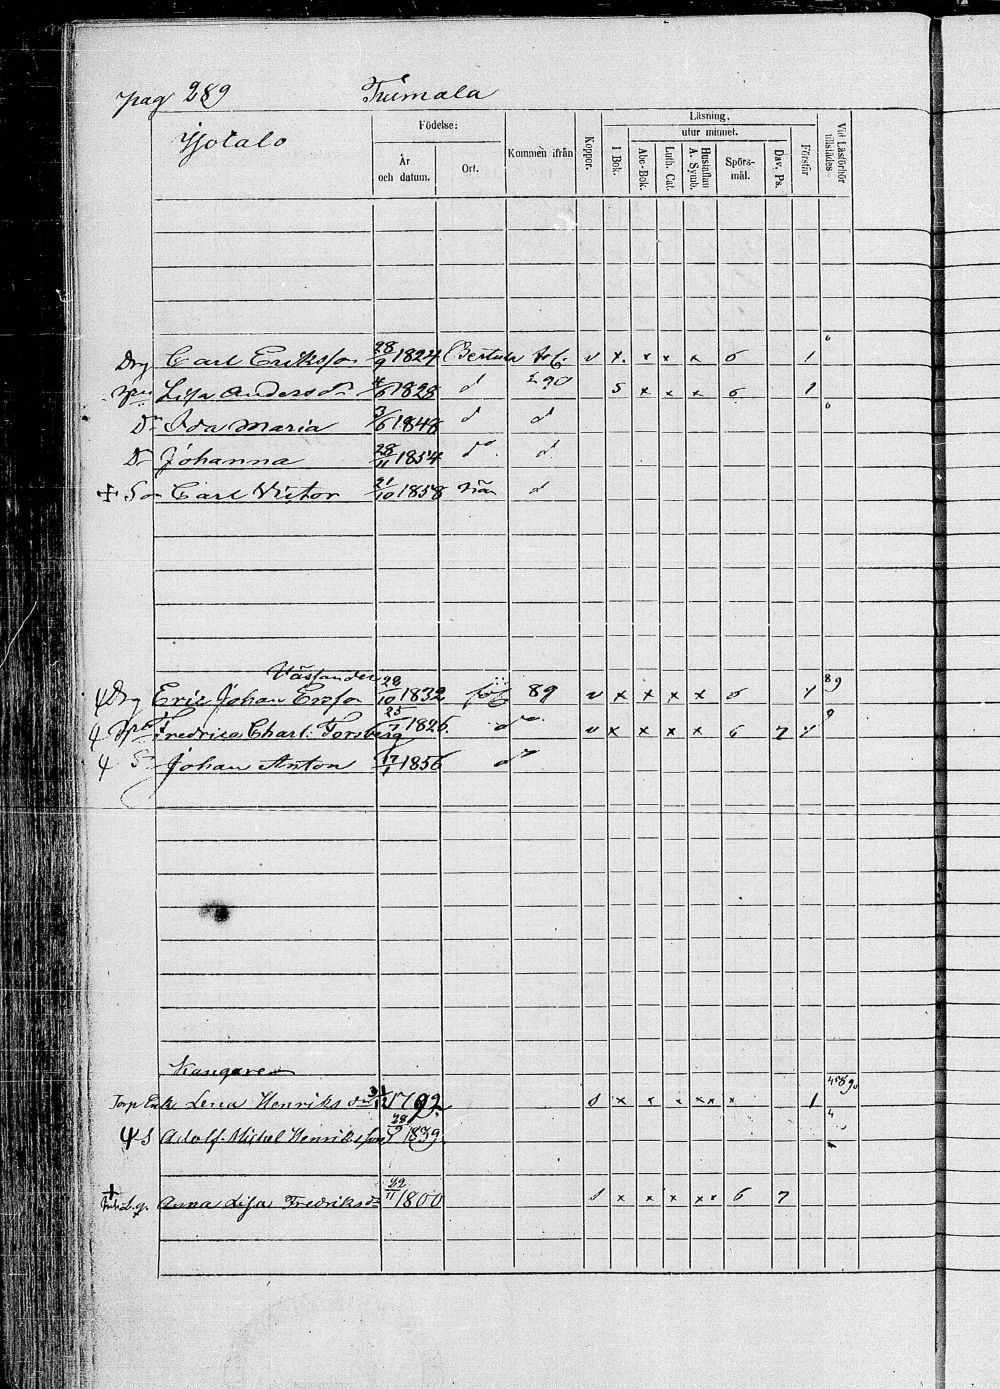 pag 289 Trümala
Isotalo
Födelse: År och datum. Ort. Kommen ifrån Koppor. Läsning. I Bok. utur minnet. Abc-Bok. Luth. Cat. Hustaflan A. Symb. Spörsmål. Dav. Ps. Förstår Vid Läsförhör tillstädes
Drg Carl Eriksson 28/9 1824 Bertula v x x x x 6 1
Lisa Andersdr 1828 d 290 5 x x x 6 1
Dr Ida Maria 3/6 1848 d d
Dr Johanna 28/11 1854 do d
+ So Carl Victor 21/10 1858 d
Eric Johan Ersson 28/10 1832 89 v x x x x 6 89
Fredrica Charl: Forsberg 1826 do v x x x x 6 7
S Johan Anton 17/1 1856 do
Kangare
Torp Enk Lena Henriksdr 1792 s x x x xx x 1
S Adolf Michel Henriksson 1839
+ Anna Lisa Fredriksdr 22/11 1800 s x x x xx 6 7